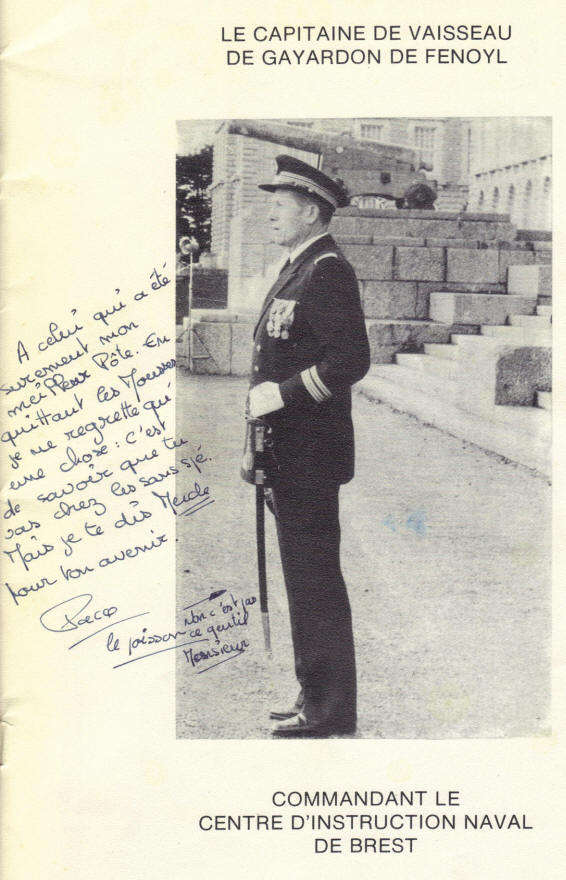 LE CAPITAINE DE VAISSEAU
DE GAYARDON DE FENOYL
A celui qui a été
surement mon
meilleur Pôte. En
quittant les Mousses
je ne regrette qu'
une chose : c'est
de savoir que tu
vas chez les sans
Mais je te dis Merde
pour ton avenir.
Pacco
le poisson
non c'est pas
ce gentil
Monsieur
COMMANDANT LE
CENTRE D'INSTRUCTION NAVAL
DE BREST